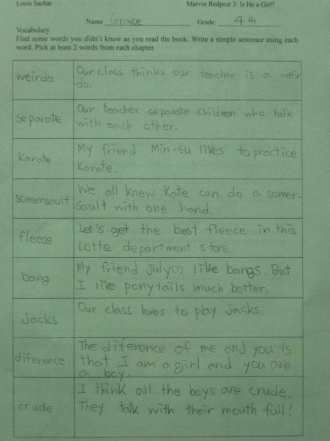 Louis Sachar Marvin Redpost 3: Is He a Girl?
Name Grace Grade: 4th
Vocabulary
Find some words you didn't know as you read the book. Write a simple sentence using each
word. Pick at least 2 words from each chapter.
weirdo
Our class thinks our teacher is a weir
do.
separate
Our teacher separate children who talk
with each other.
Karate
My friend Min-su likes to practice
Karate.
somersault
We all knew Kate can do a somer-
sault with one hand.
fleece
Let's get the best fleece in this
Lotte department store
bang
My friend like bangs. But
I like ponytails much better.
Jacks
Our class loves to play jacks.
diference
The diference of me and you is
that I am a girl and you are
a boy.
crude
I think all the boys are crude.
They talk with their mouth full!